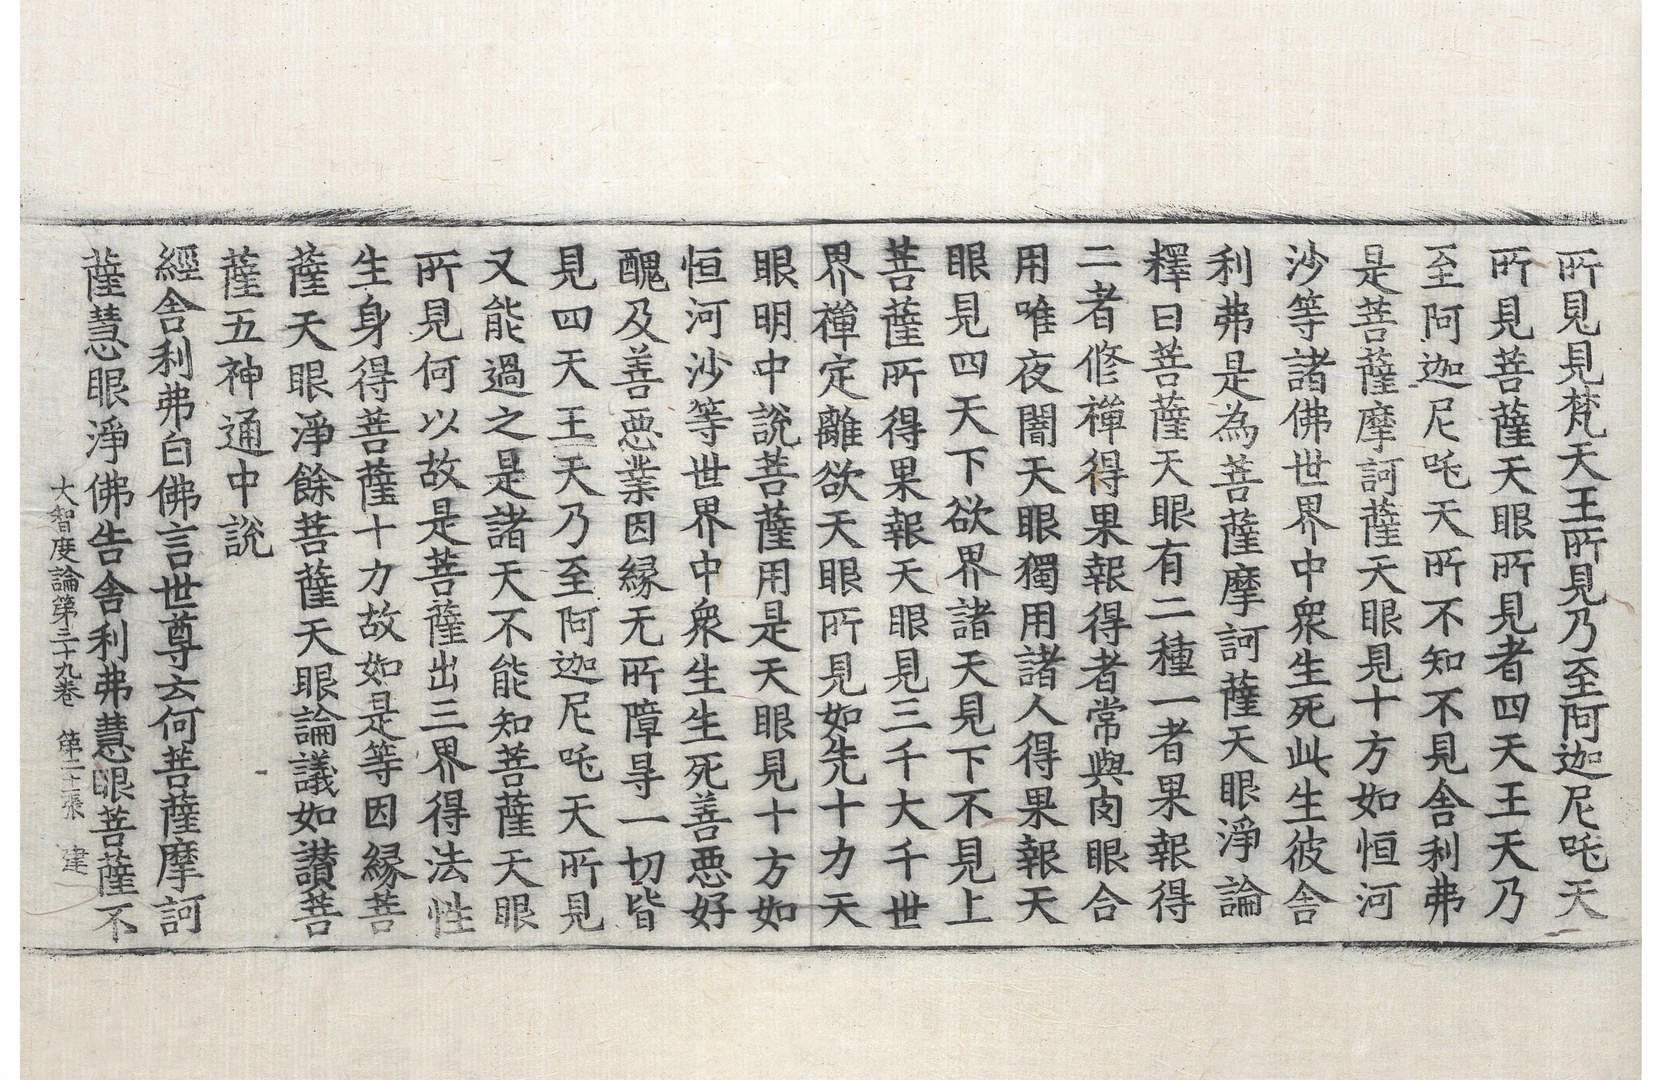 所見見梵天王所見乃至阿迦尼吒天
所見菩薩天眼所見者四天王天乃
至阿迦尼吒天所不知不見舍利弗
是菩薩摩訶薩天眼見十方如恒河
沙等諸佛世界中衆生死此生彼舍
利弗是為菩薩摩訶薩天眼淨論
釋曰菩薩天眼有二種一者果報得
二者修禪得果報得者常與肉眼合
用唯夜闇天眼獨用諸人得果報天
眼見四天下欲界諸天見下不見上
菩薩所得果報天眼見三千大千世
界禪定離欲天眼所見如先十力天
眼明中說菩薩用是天眼見十方如
恒河沙等世界中衆生生死善惡好
醜及善惡業因緣无所障㝵一切皆
見四天王天乃至阿迦尼吒天所見
又能過之是諸天不能知菩薩天眼
所見何以故是菩薩出三界得法性
生身得菩薩十力故如是等因緣菩
薩天眼淨餘菩薩天眼論議如讚菩
薩五神通中說
經舍利弗白佛言世尊云何菩薩摩訶
薩慧眼淨佛告舍利弗慧眼菩薩不
大智度論第三十九卷 第二十張 建